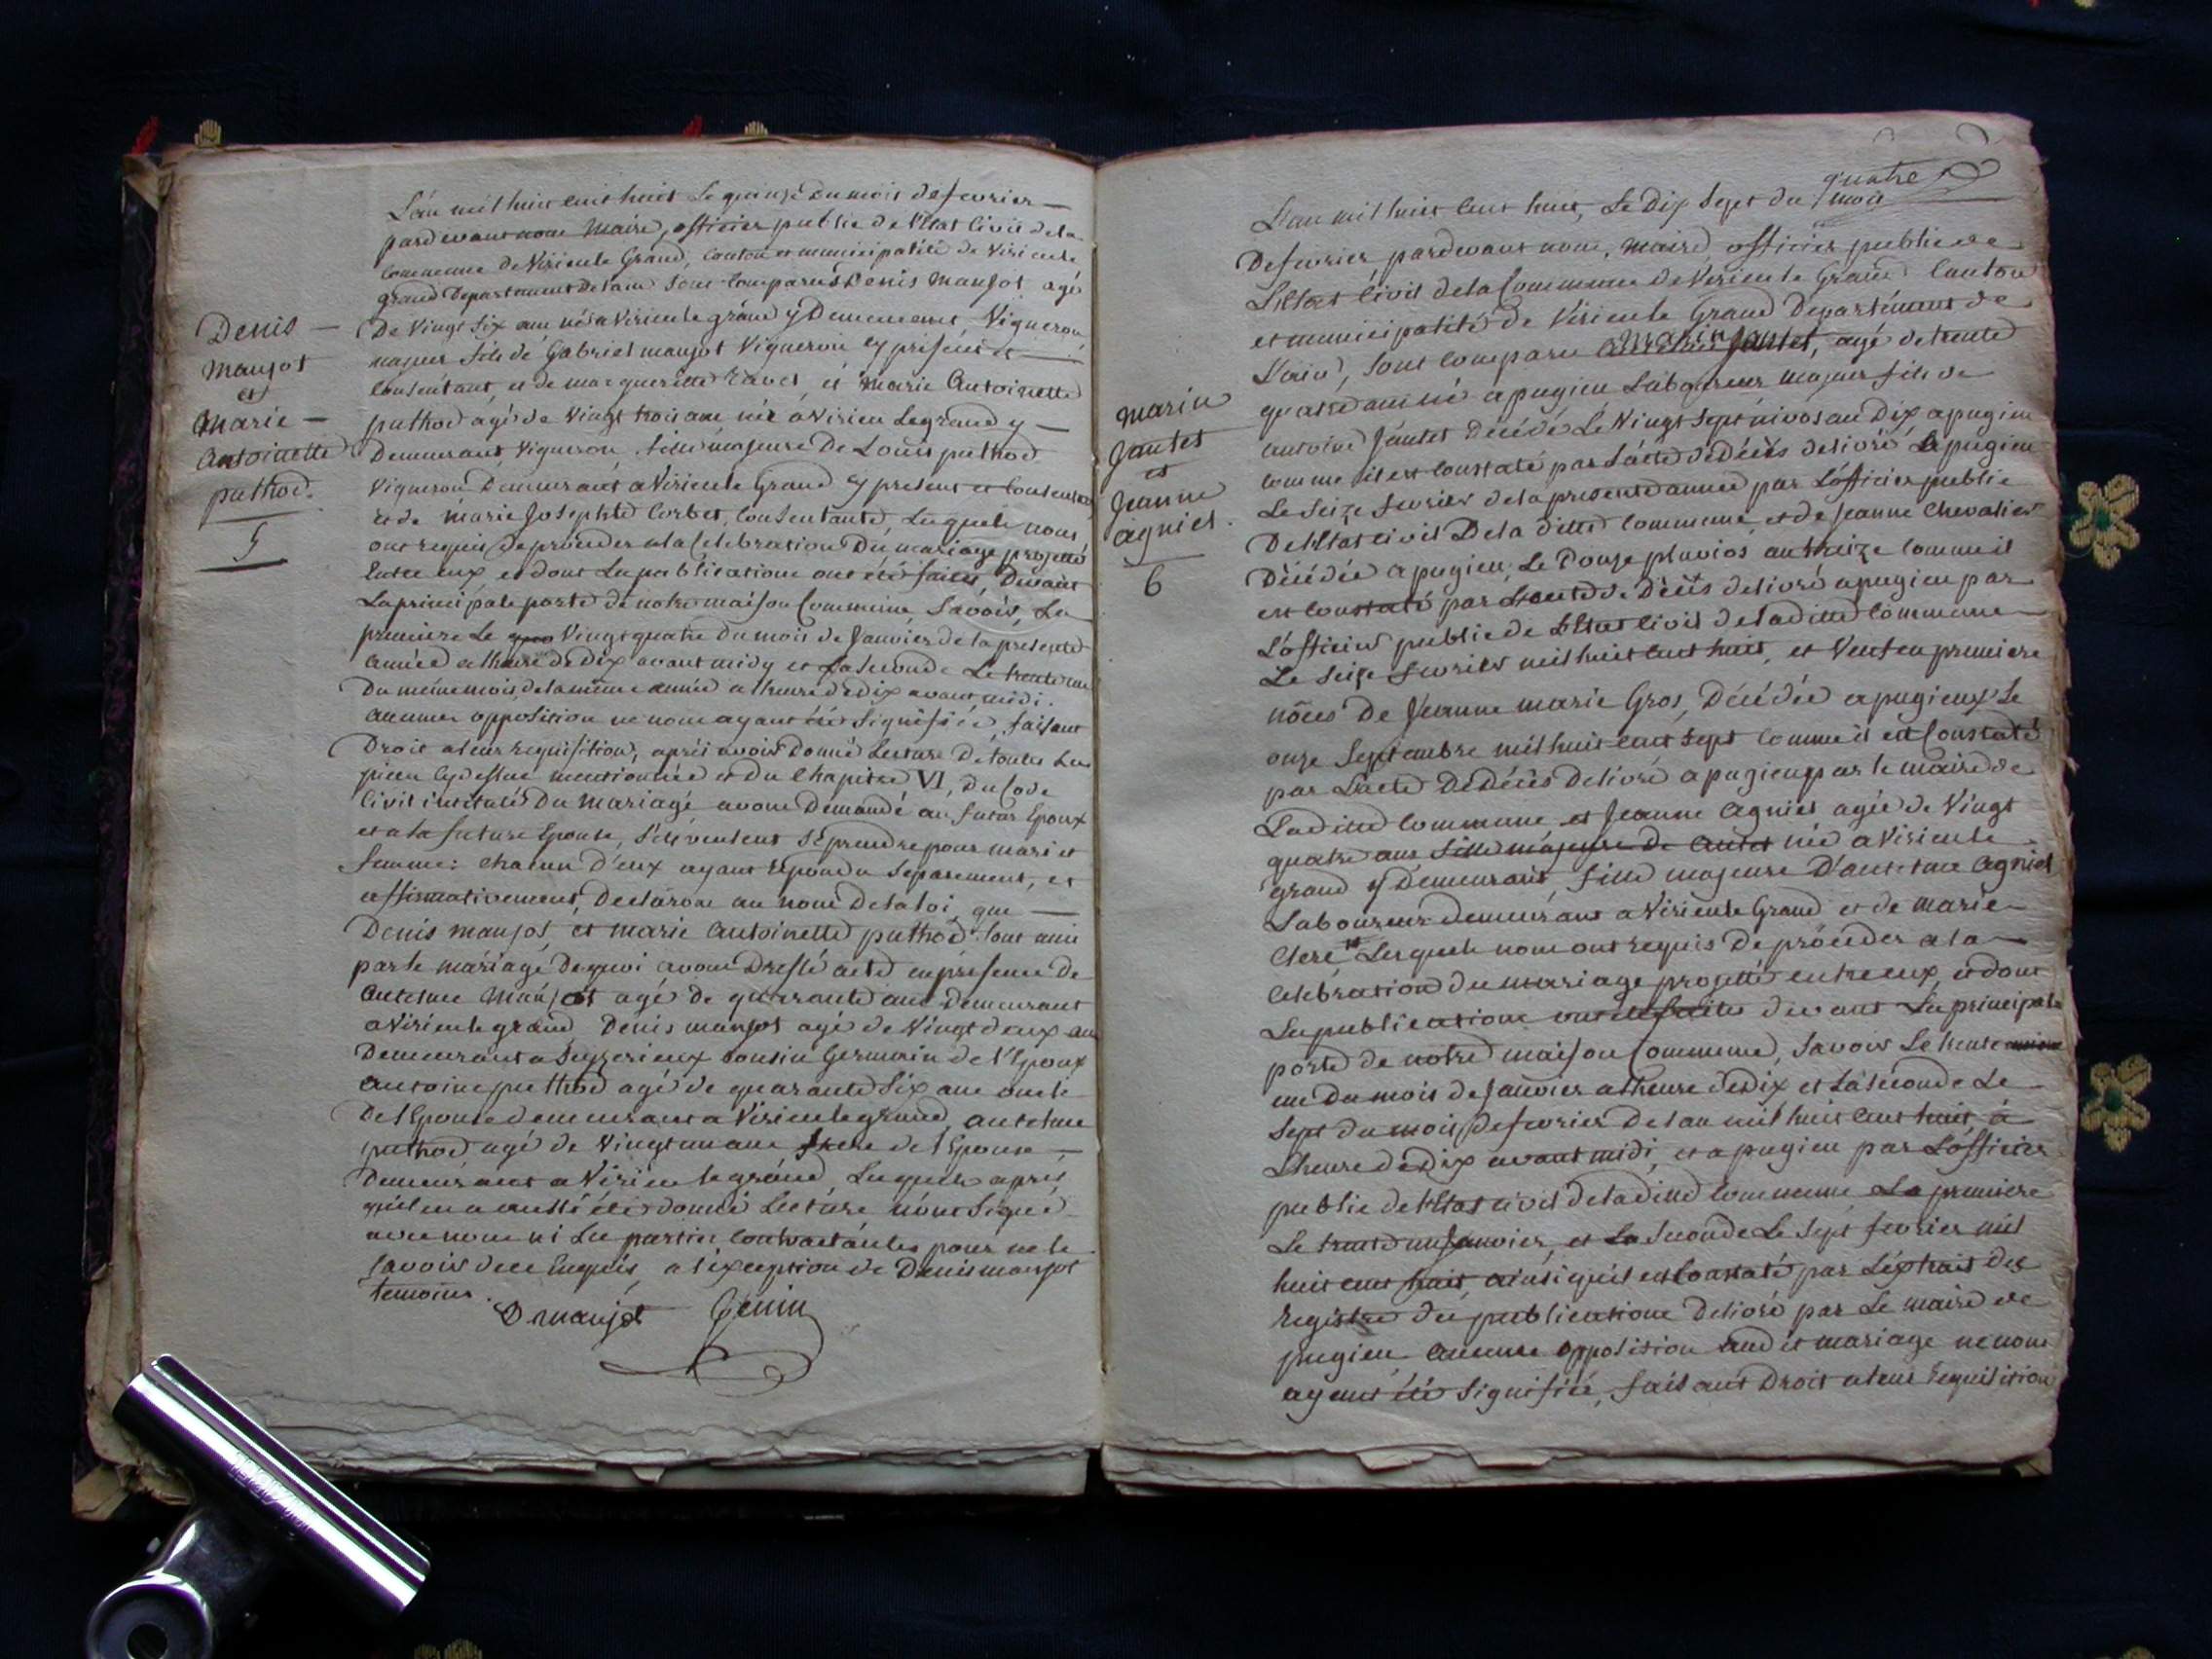 L'an mil huit cent huit Le quinze du mois de fevrier
pardevant nous Maire, officier public de l'Etat Civil de la
Commune de Virieu le Grand, Canton et municipalité de Virieu le
grand Departement de lain Sont Comparus Denis Maujot agé
De Vingt Six ans né à Virieu le grand y Demeurant, Vigneron,
majeur fils de Gabriel maujot Vigneron cy présent et
Consentant, et de marguerite Ravet, et Marie Antoinette
puthod agé de Vingt trois ans née à Virieu Legrand y
Demeurant Vigneron, fille majeure De Louis puthod
Vigneron Demeurant a Virieu le Grand cy present et Consentant
et de Marie Josephte Corbet, Consentante, Lesquels nous
ont requis de procéder a la Celebration Du mariage projetté
Entre eux et dont Les publications ont été faites Devant
La principale porte de notre maison Commune, Savoir, La
premiere Le Vingt quatre du mois de Janvier de la presente
année a lheure de Dix avant midy et La Seconde Le trente un
Du même mois, de la même année a lheure de dix avant midi.
aucune opposition ne nous ayant été Signifiée, faisant
Droit a leur requisition, après avoir Donné Lecture De toutes Les
pieces Cy dessus mentionnée et du Chapitre VI, du Code
Civil intitulé Du Mariage avons Demandé au futur Epoux
et a la future Epouse, S'ils veulent Se prendre pour mari et
femme: chacun d'eux ayant répondu Separement, et
affirmativement, Declarons au nom De la loi, que
Denis maujot, et marie Antoinette puthod Sont unis
par le mariage De quoi avons Dressé acte en présence de
Antelme Maujot agé de quarante ans Demeurant
a Virieu le grand Denis maujot agé de Vingt deux ans
Demeurant a Seyzerieux Cousin Germain de l'Epoux
Antoine puthod agé de quarante Six ans oncle
De l'Epouse demeurant a Virieu le grand, antelme
puthod agé de Vingt un ans frere de l'Epouse
Demeurant a Virieu le grand, Lesquels après
qu'il en a aussi été donné Lecture n'ont Signé
avec nous ni Les parties Contractantes pour ne le
Savoir de ce Enquis, a l'exception de Denis maujot
temoins.
D maujot Genin
Denis
Maujot
et
Marie
Antoinette
puthod.
5
quatre
L'an mil huit Cent huit, Le Dix Sept du mois
De fevrier, pardevant nous, Maire, officier public de
L'Etat Civil de la Commune de Virieu le Grand Canton
et municipalité de Virieu le Grand Departement de
Marin
L'ain, Sont Comparu Jantet, agé de trente
quatre ans né a pugieu Laboureur Majeur fils de
Antoine Jantet Décédé Le Vingt Sept nivos an Dix a pugieu
Comme il est Constaté par L'acte de Décès delivré a pugieu
Le Seize fevrier de la presente année par L'officier public
De l'Etat Civil De la ditte Commune, et de Jeanne Chevalier
Décédée a pugieu, Le Douze pluvios an treize Comme il
est Constaté par L'acte de Décès delivré a pugieu par
L'officier public de L'Etat Civil de la ditte Commune
Le Seize fevrier mil huit Cent huit, et Veuf en premiere
nôces De Jeanne marie Gros, Décédée a pugieux Le
onze Septembre mil huit Cent Sept Comme il est Constaté
par L'acte De Décès Delivré a pugieu par le maire de
Ladite Commune et Jeanne Agniel agée de Vingt
quatre ans fille majeure de née a Virieu le
grand y Demeurant, fille majeure D'antelme Agniel
Laboureur demeurant a Virieu le Grand et de Marie
Clere Lesquels nous ont requis De procéder a la
Celebration du mariage projetté entre eux, et dont
Les publications ont été faites devant La principale
porte de notre maison Commune, Savoir Le trente
un Du mois de Janvier a lheure de Dix et La Seconde Le
Sept du mois De fevrier De l'an mil huit Cent huit, à
L'heure de Dix avant midi, et a pugieu par L'officier
public de l'Etat Civil de la ditte Commune, La premiere
Le trente un Janvier, et La Seconde Le Sept fevrier mil
huit Cent huit, ainsi qu'il est Constaté par L'extrait des
registre des publications Delivré par Le Maire de
pugieu Aucune opposition audit mariage ne nous
ayant été Signifiée, faisant Droit a leur requisition
Marin
Jantet
et
Jeanne
Agniel.
6